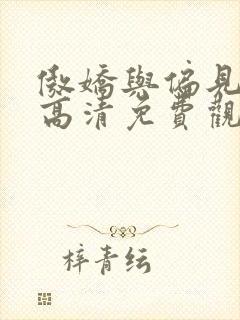 傲嬌與偏見
高清免費觀
梓青纭